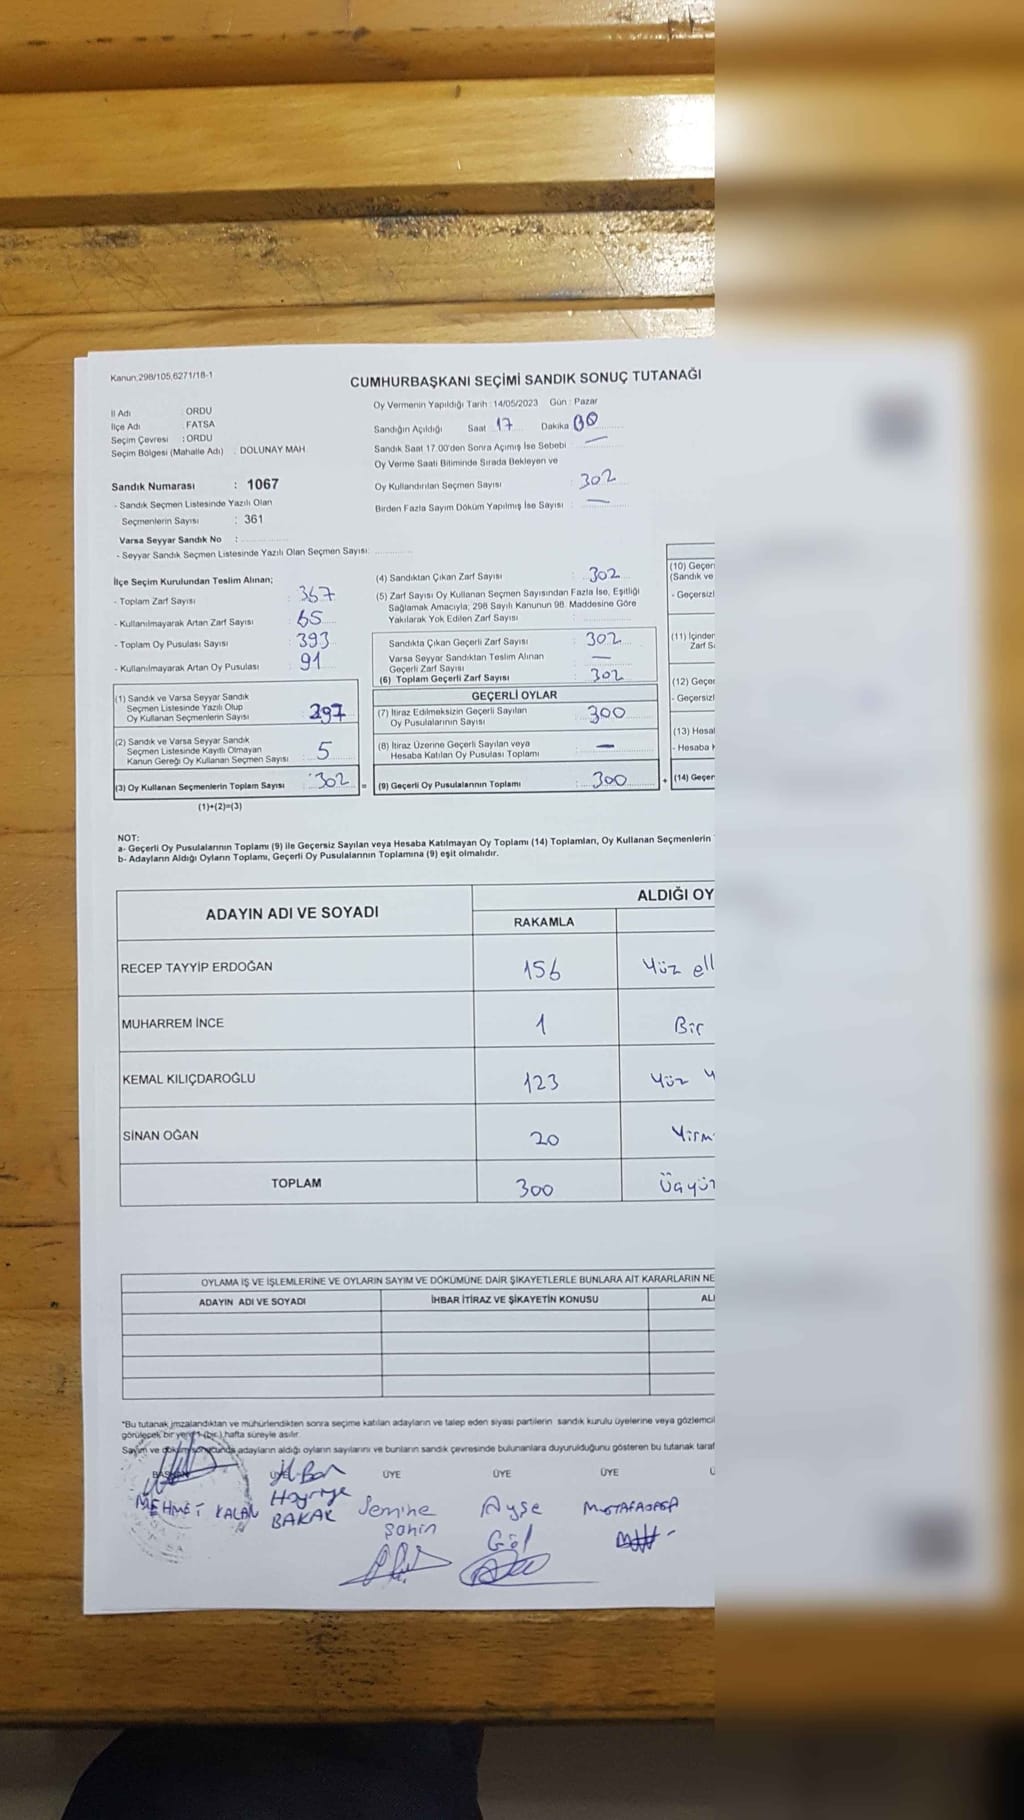 Kanun:298/105,6271/18-1
CUMHURBAŞKANI SEÇİMİ SANDIK SONUÇ TUTANAĞI
İl Adı : ORDU
İlçe Adı : FATSA
Seçim Çevresi : ORDU
Seçim Bölgesi (Mahalle Adı) : DOLUNAY MAH
Oy Vermenin Yapıldığı Tarih : 14/05/2023 Gün : Pazar
Sandığın Açıldığı Saat 17 Dakika 00
Sandık Saat 17.00'den Sonra Açımış İse Sebebi —
Oy Verme Saati Bitiminde Sırada Bekleyen ve
Oy Kullandırılan Seçmen Sayısı : 302
Birden Fazla Sayım Döküm Yapılmış İse Sayısı : —
Sandık Numarası : 1067
- Sandık Seçmen Listesinde Yazılı Olan
Seçmenlerin Sayısı : 361
Varsa Seyyar Sandık No :
- Seyyar Sandık Seçmen Listesinde Yazılı Olan Seçmen Sayısı:
İlçe Seçim Kurulundan Teslim Alınan;
- Toplam Zarf Sayısı : 367
- Kullanılmayarak Artan Zarf Sayısı : 65
- Toplam Oy Pusulası Sayısı : 393
- Kullanılmayarak Artan Oy Pusulası : 91
(1) Sandık ve Varsa Seyyar Sandık
Seçmen Listesinde Yazılı Olup
Oy Kullanan Seçmenlerin Sayısı : 297
(2) Sandık ve Varsa Seyyar Sandık
Seçmen Listesinde Kayıtlı Olmayan
Kanun Gereği Oy Kullanan Seçmen Sayısı : 5
(3) Oy Kullanan Seçmenlerin Toplam Sayısı : 302 =
(1)+(2)=(3)
(4) Sandıktan Çıkan Zarf Sayısı : 302
(5) Zarf Sayısı Oy Kullanan Seçmen Sayısından Fazla İse, Eşitliği
Sağlamak Amacıyla; 298 Sayılı Kanunun 98. Maddesine Göre
Yakılarak Yok Edilen Zarf Sayısı :
Sandıkta Çıkan Geçerli Zarf Sayısı : 302
Varsa Seyyar Sandıktan Teslim Alınan
Geçerli Zarf Sayısı : —
(6) Toplam Geçerli Zarf Sayısı : 302
GEÇERLİ OYLAR
(7) İtiraz Edilmeksizin Geçerli Sayılan
Oy Pusulalarının Sayısı : 300
(8) İtiraz Üzerine Geçerli Sayılan veya
Hesaba Katılan Oy Pusulası Toplamı : —
(9) Geçerli Oy Pusulalarının Toplamı : 300 +
(10) Geçer
(Sandık ve
- Geçersizl
(11) İçinden
Zarf S
(12) Geçer
- Geçersizl
(13) Hesa
- Hesaba K
(14) Geçer
NOT:
a- Geçerli Oy Pusulalarının Toplamı (9) ile Geçersiz Sayılan veya Hesaba Katılmayan Oy Toplamı (14) Toplamları, Oy Kullanan Seçmenlerin
b- Adayların Aldığı Oyların Toplamı, Geçerli Oy Pusulalarının Toplamına (9) eşit olmalıdır.
ADAYIN ADI VE SOYADI
ALDIĞI OY
RAKAMLA
RECEP TAYYİP ERDOĞAN 156 Yüz ell
MUHARREM İNCE 1 Bir
KEMAL KILIÇDAROĞLU 123 Yüz y
SİNAN OĞAN 20 Yirm
TOPLAM 300 Üçyüz
OYLAMA İŞ VE İŞLEMLERİNE VE OYLARIN SAYIM VE DÖKÜMÜNE DAİR ŞİKAYETLERLE BUNLARA AİT KARARLARIN NE
ADAYIN ADI VE SOYADI İHBAR İTİRAZ VE ŞİKAYETİN KONUSU ALI
*Bu tutanak imzalandıktan ve mühürlendikten sonra seçime katılan adayların ve talep eden siyasi partilerin sandık kurulu üyelerine veya gözlemcil
görülecek bir yere 1 (bir) hafta süreyle asılır.
Sayım ve döküm sonucunda adayların aldığı oyların sayılarını ve bunların sandık çevresinde bulunanlara duyurulduğunu gösteren bu tutanak taraf
BAŞKAN ÜYE ÜYE ÜYE
MEHMET KALAN
Hayriye
BAKAK
Semine
Şahin
Ayşe
Göl